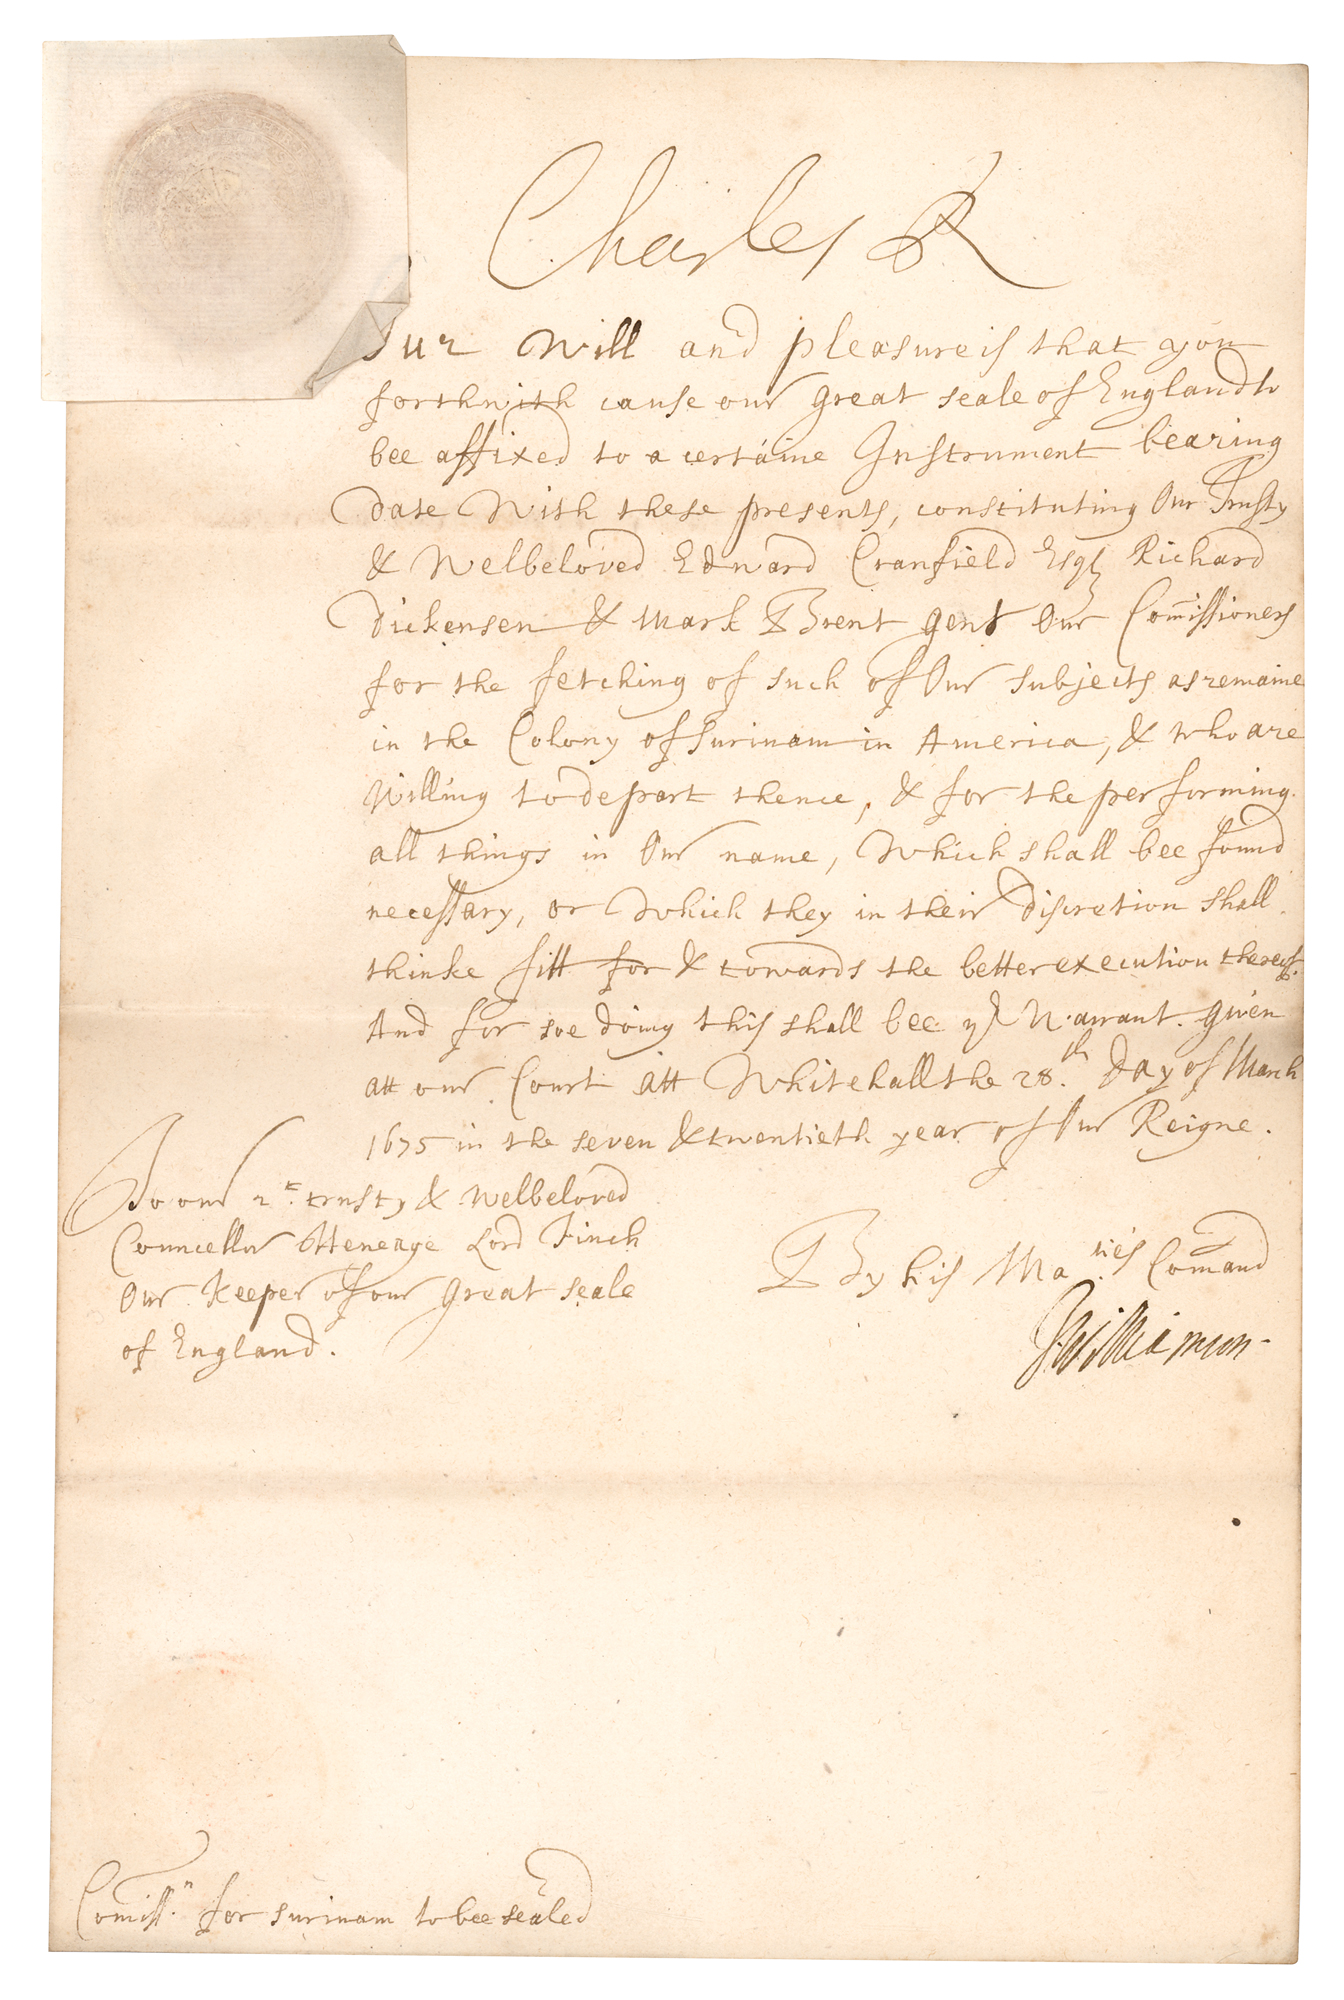 Charles R
Our Will and pleasure is that you
forthwith cause our great seale of England to
bee affixed to a certaine Instrument bearing
date With these presents, constituting Our Trusty
& Welbeloved Edward Cranfield Esqr Richard
Dickensen & Mark Brent gent Our Comissioners
for the fetching of such of Our subjects as remaine
in the Colony of Surinam in America, & who are
Willing to depart thence, & for the performing
all things in Our name, Which shall bee found
necessary, or Which they in their discretion shall
thinke fitt for & towards the better execution thereof.
And for soe doing this shall bee yr Warrant. Given
att our Court att Whitehall the 28.th Day of March
1675 in the seven & twentieth year of Our Reigne.
To our rt. trusty & Welbeloved
Councellor Heneage Lord Finch
Our Keeper of our Great seale
of England.
By his Ma.ties Comand
J Williamson
Comiss.n for surinam to bee sealed